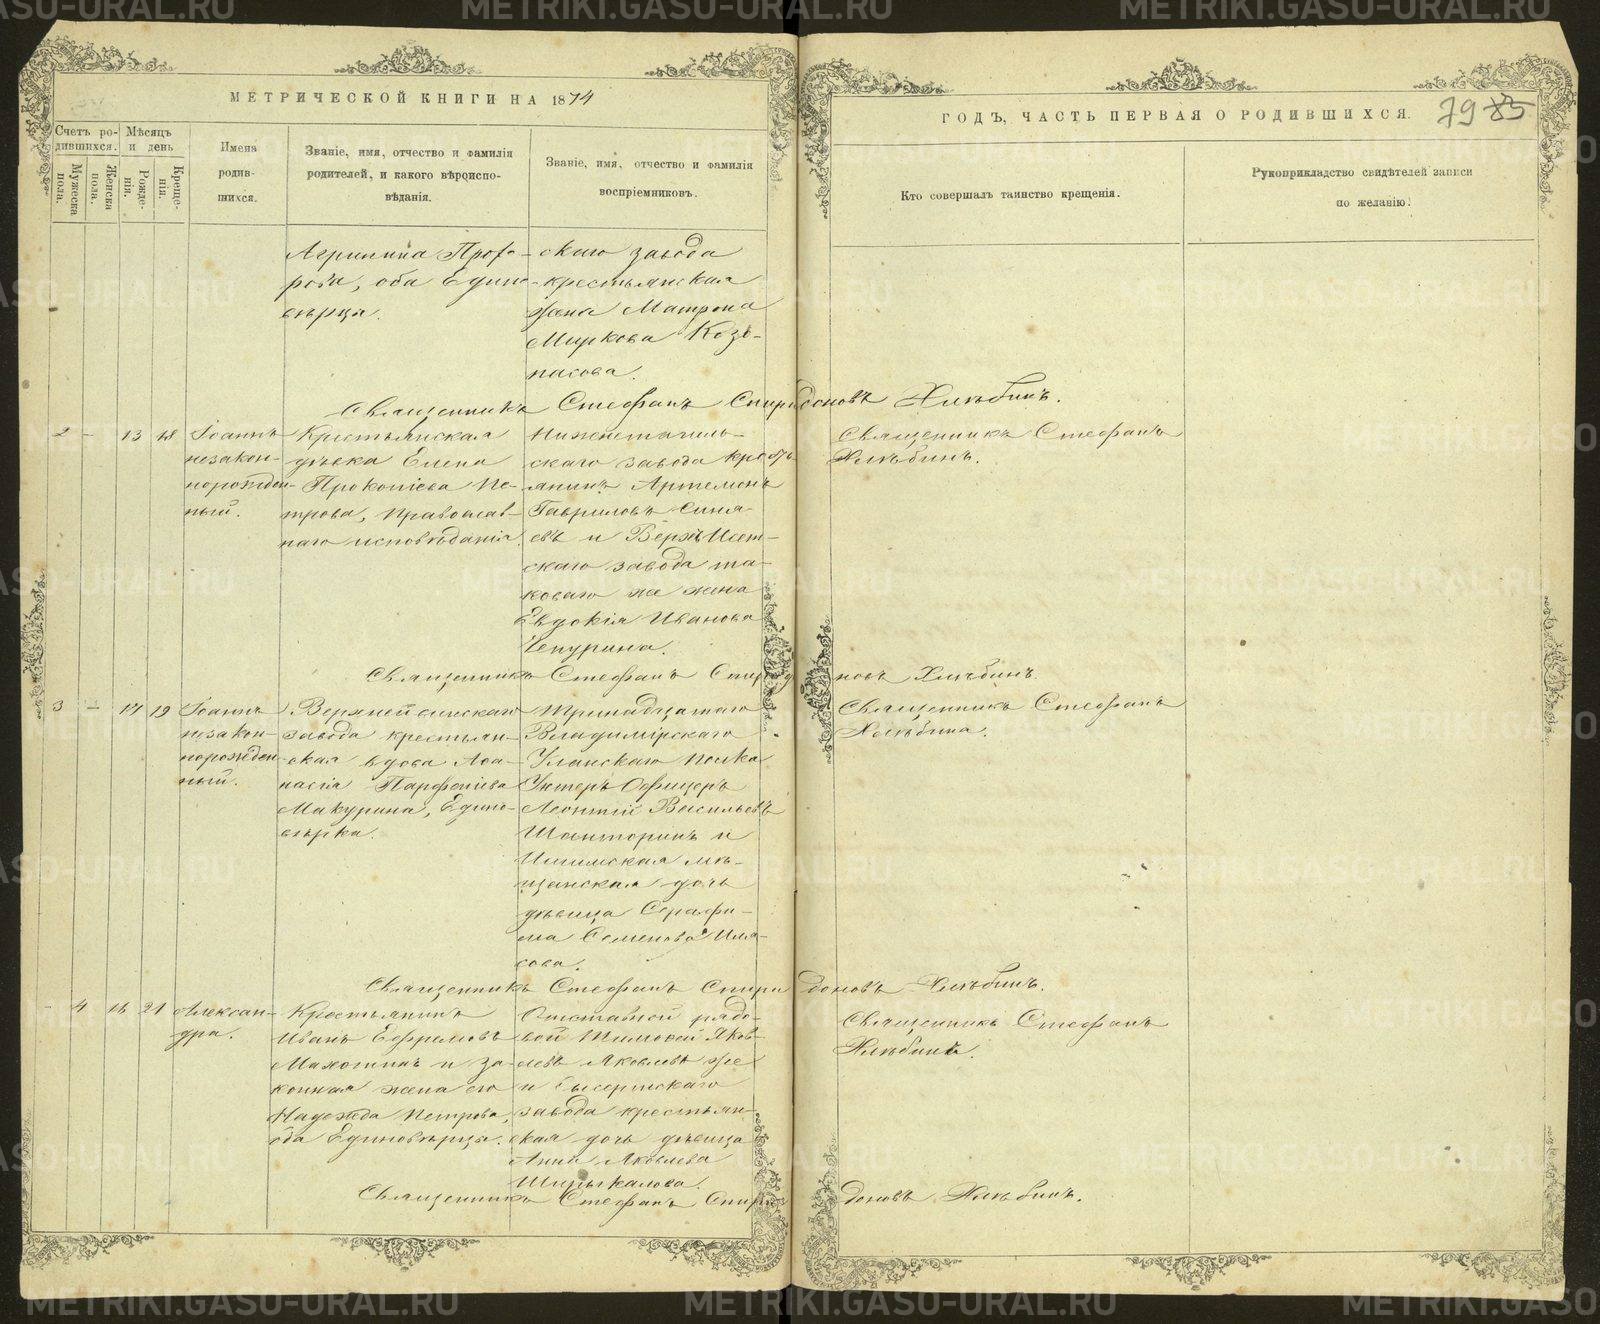 МЕТРИЧЕСКОЙ КНИГИ НА 1874
ГОДЪ, ЧАСТЬ ПЕРВАЯ О РОДИВШИХСЯ.
79 85
Счетъ ро-
дившихся.
Мужеска
пола.
Женска
пола.
Мѣсяцъ
и день
Рожде-
нія.
Креще-
нія.
Имена
родив-
шихся.
Званіе, имя, отчество и фамилія
родителей, и какого вѣроиспо-
вѣданія.
Званіе, имя, отчество и фамилія
воспріемниковъ.
Кто совершалъ таинство крещенія.
Рукоприкладство свидѣтелей записи
по желанію.
Агрипина
оба Едино-
вѣрцы.
скаго завода
крестьянская
жена Матрона
Маркова Козь-
пасова.
Священникъ Стефанъ Спиридоновъ Хлѣбинъ.
2 - 13 18
Іоаннъ
незакон-
норожден-
ный.
Крестьянская
дѣвка Елена
Прокопіева Пе-
трова, Православ-
наго исповѣданія.
Нижнетагиль-
скаго завода кресть-
янинъ Артемонъ
Гавриловъ Синя-
евъ и Верхъ Исет-
скаго завода та-
коваго же жена
Евдокія Иванова
Чепурина.
Священникъ Стефанъ
Хлѣбинъ.
Священникъ Стефанъ Спиридоновъ Хлѣбинъ.
3 - 17 19
Іоаннъ
незакон-
норожден-
ный.
завода крестьян-
ская вдова Аѳа-
насія Парфеніева
Макурина, Едино-
вѣрка.
Тринадцатаго
Владимірскаго
Уланскаго полка
Унтеръ Офицеръ
Леонтій Васильевъ
Шанторинъ и
мѣ-
щанская дочь
дѣвица Серафи-
ма Семенова Иля-
сова.
Священникъ Стефанъ
Хлѣбинъ.
Священникъ Стефанъ Спиридоновъ Хлѣбинъ.
- 4 16 21
Алексан-
дра.
Крестьянинъ
Иванъ Ефремовъ
Махотинъ и за-
конная жена его
Надежда Петрова,
оба Единовѣрцы.
Отставной рядо-
вой Тимофей Яков-
левъ Яковлевъ же
и Сысертскаго
завода крестьян-
ская дочь дѣвица
Анна Яковлева
Шипыкалова.
Священникъ Стефанъ
Хлѣбинъ.
Священникъ Стефанъ Спиридоновъ Хлѣбинъ.
METRIKI.GASO-URAL.RU